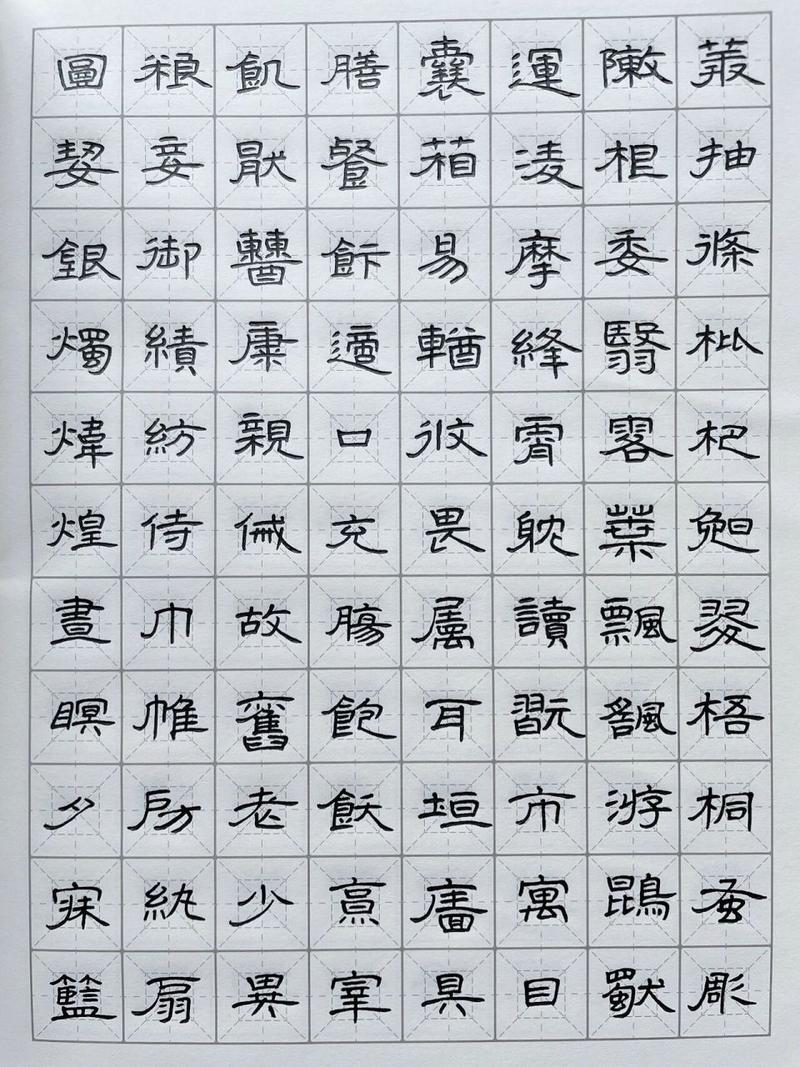 莽抽條枇杷晚翠梧桐蚤彫
陳根委翳落葉飄颻游鵾獨
運凌摩絳霄耽讀翫市寓目
囊箱易輶攸畏屬耳垣牆具
膳飡飯適口充腸飽飫烹宰
飢厭糟糠親戚故舊老少異
糧妾御績紡侍巾帷房紈扇
圓潔銀燭煒煌晝瞑夕寐籃